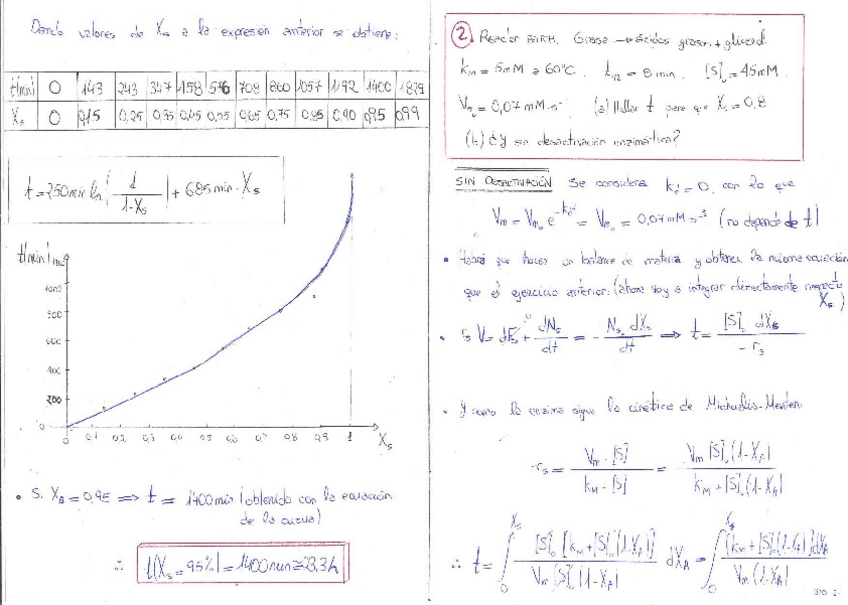 Dando valores de Xs a la expresión anterior se obtiene:
t(min) 0 143 243 347 458 576 708 860 1057 1192 1400 1829
Xs 0 0,15 0,25 0,35 0,45 0,55 0,65 0,75 0,85 0,90 0,95 0,99
t = 250 min ln | 1 / 1-Xs | + 685 min · Xs
t(min)
800
600
400
200
0
0 0,1 0,2 0,3 0,4 0,5 0,6 0,7 0,8 0,9 1 Xs
• Si Xs = 0,95 ⟹ t = 1400 min (obtenido con la ecuación
de la curva)
∴ t(Xs = 95%) = 1400 min ≅ 23,3 h
2. Reactor BATCH. Grasa → ácidos grasos + glicerol
kM = 5 mM a 60ºC. t1/2 = 8 min. [S]₀ = 45 mM
Vm₀ = 0,07 mM·s⁻¹ (a) Hallar t para que Xs = 0,8
(b) ¿Y sin desactivación enzimática?
SIN DESACTIVACIÓN Se considera kd = 0, con lo que
Vm = Vm₀ e^-kd·t = Vm₀ = 0,07 mM·s⁻¹ (no depende de t)
• Habrá que hacer un balance de materia y obtener la misma ecuación
que el ejercicio anterior: (ahora voy a integrar directamente respecto
Xs)
• rs V = dFs + dNs/dt = - Ns₀ dXs/dt ⟹ t = [S]₀ dXs / -rs
• Y como la enzima sigue la cinética de Michaelis-Menten:
-rs = Vm · [S] / kM - [S] = Vm [S]₀ (1-XA) / kM + [S]₀ (1-XA)
∴ t = ∫₀^Xs [S]₀ [kM + [S]₀ (1-XA)] / Vm [S]₀ (1-XA) dXA = ∫₀^Xs (kM + [S]₀ (1-XA)) dXA / Vm (1-XA)